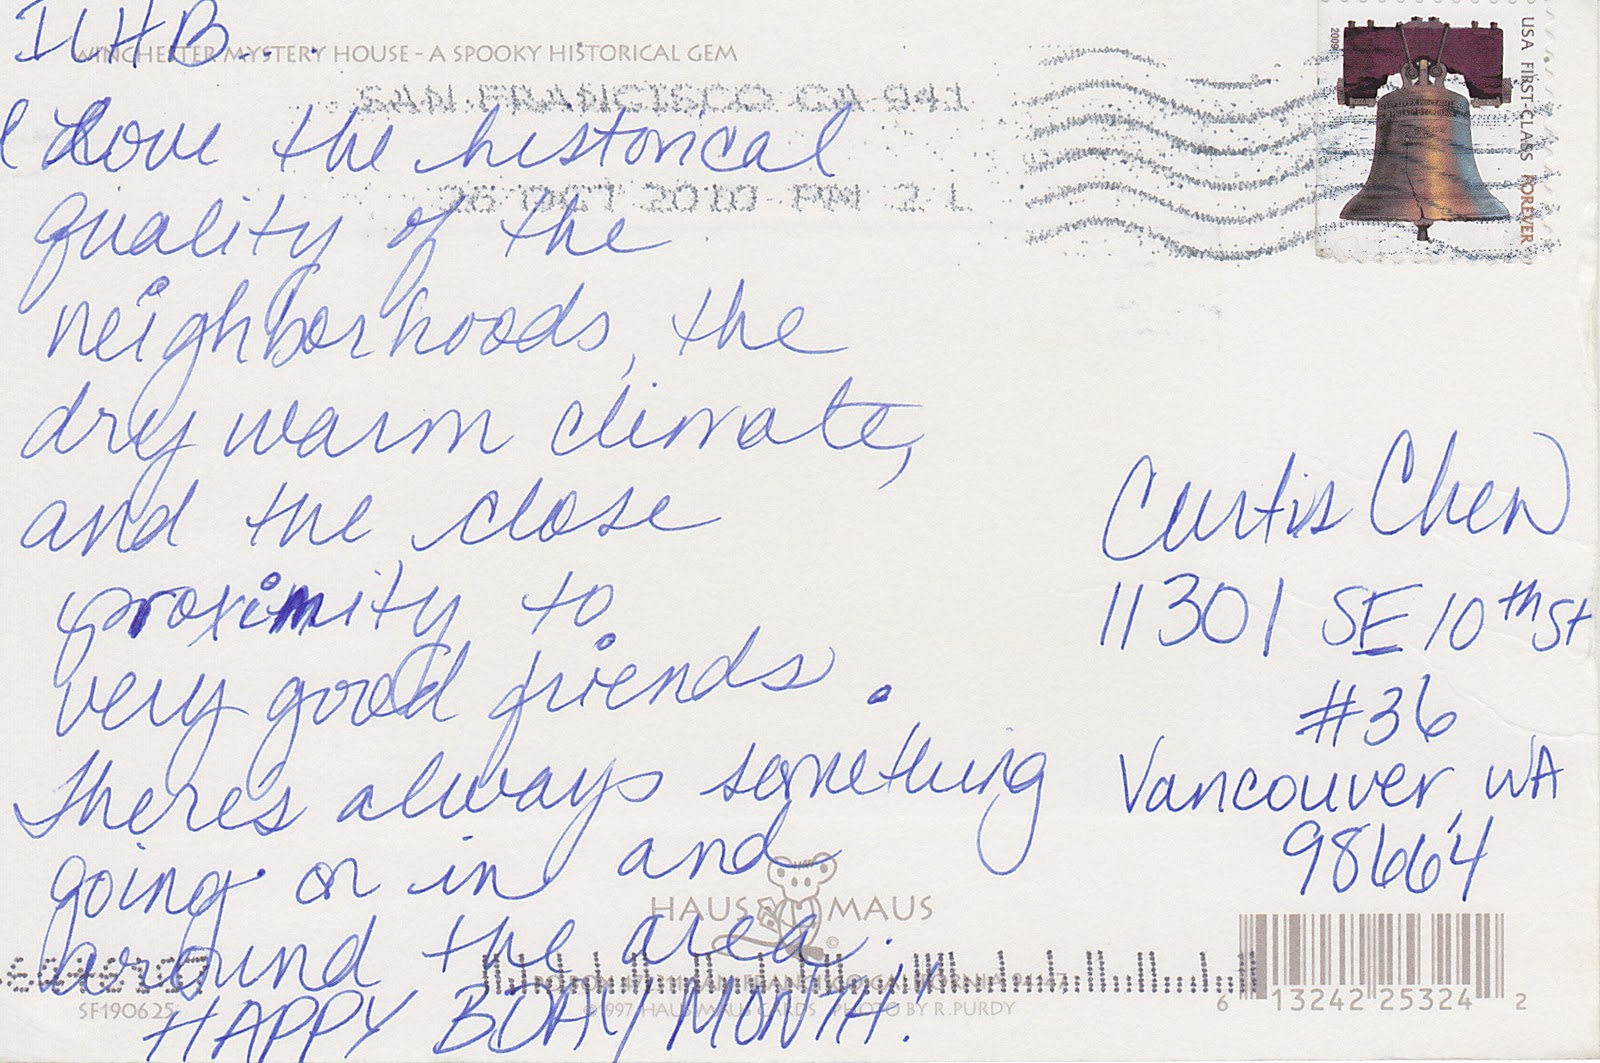 IHB...
WINCHESTER MYSTERY HOUSE - A SPOOKY HISTORICAL GEM
SAN FRANCISCO CA 941
26 OCT 2010 PM 2 L
I Love the historical
quality of the
neighborhoods, the
dry warm climate,
and the close
proximity to
very good friends.
There's always something
going on in and
around the area.
HAPPY BDAY MONTH!
USA FIRST-CLASS FOREVER
2009
Curtis Chen
11301 SE 10th St
#36
Vancouver, WA
98664
HAUS MAUS
©
SF190625
©1997 HAUS MAUS CARDS PHOTO BY R.PURDY
6 13242 25324 2